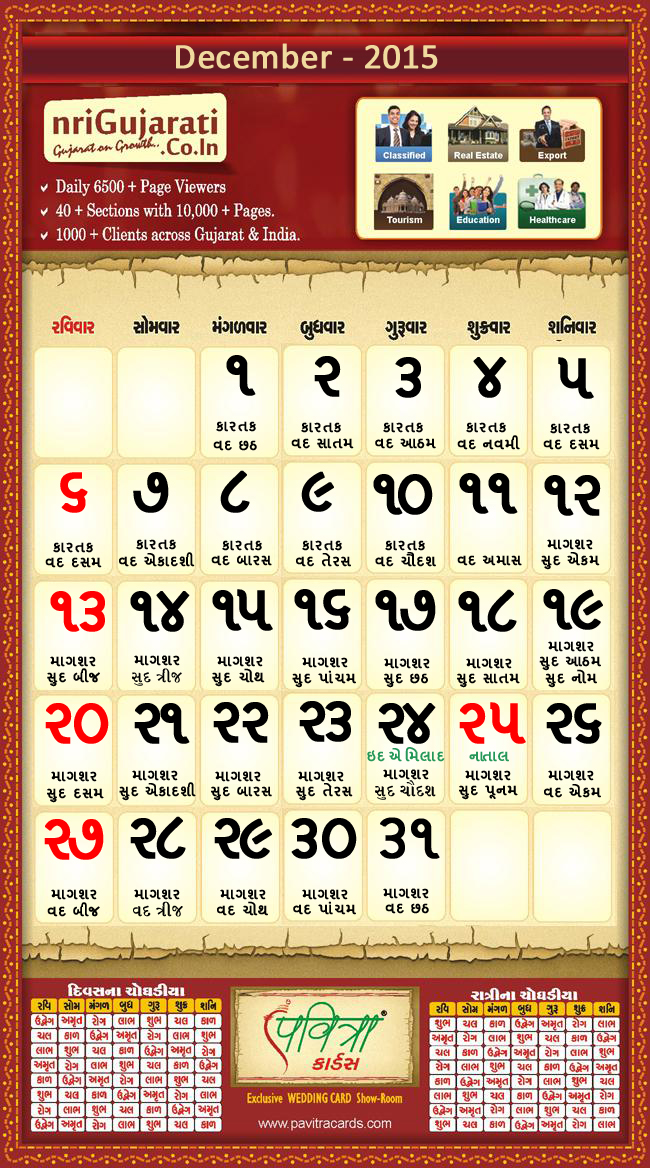 December - 2015
nriGujarati
Gujarat on Growth..
.Co.In
Daily 6500 + Page Viewers
40 + Sections with 10,000 + Pages.
1000 + Clients across Gujarat & India.
Classified Real Estate Export
Tourism Education Healthcare
રવિવાર સોમવાર મંગળવાર બુધવાર ગુરૂવાર શુક્રવાર શનિવાર
૧ ૨ ૩ ૪ ૫
કારતક કારતક કારતક કારતક કારતક
વદ છઠ વદ સાતમ વદ આઠમ વદ નવમી વદ દસમ
૬ ૭ ૮ ૯ ૧૦ ૧૧ ૧૨
કારતક કારતક કારતક કારતક કારતક માગશર
વદ દસમ વદ એકાદશી વદ બારસ વદ તેરસ વદ ચૌદશ વદ અમાસ સુદ એકમ
૧૩ ૧૪ ૧૫ ૧૬ ૧૭ ૧૮ ૧૯
માગશર માગશર માગશર માગશર માગશર માગશર માગશર
સુદ બીજ સુદ ત્રીજ સુદ ચોથ સુદ પાંચમ સુદ છઠ સુદ સાતમ સુદ આઠમ
સુદ નોમ
૨૦ ૨૧ ૨૨ ૨૩ ૨૪ ૨૫ ૨૬
ઇદ એ મિલાદ નાતાલ
માગશર માગશર માગશર માગશર માગશર માગશર માગશર
સુદ દસમ સુદ એકાદશી સુદ બારસ સુદ તેરસ સુદ ચૌદશ સુદ પૂનમ વદ એકમ
૨૭ ૨૮ ૨૯ ૩૦ ૩૧
માગશર માગશર માગશર માગશર માગશર
વદ બીજ વદ ત્રીજ વદ ચોથ વદ પાંચમ વદ છઠ
દિવસના ચોઘડીયા
રવિ સોમ મંગળ બુધ ગુરૂ શુક્ર શનિ
ઉદ્વેગ અમૃત રોગ લાભ શુભ ચલ કાળ
ચલ કાળ ઉદ્વેગ અમૃત રોગ લાભ શુભ
લાભ શુભ ચલ કાળ ઉદ્વેગ અમૃત રોગ
અમૃત રોગ લાભ શુભ ચલ કાળ ઉદ્વેગ
કાળ ઉદ્વેગ અમૃત રોગ લાભ શુભ ચલ
શુભ ચલ કાળ ઉદ્વેગ અમૃત રોગ લાભ
રોગ લાભ શુભ ચલ કાળ ઉદ્વેગ અમૃત
ઉદ્વેગ અમૃત રોગ લાભ શુભ ચલ કાળ
પવિત્રા®
કાર્ડસ
Exclusive WEDDING CARD Show-Room
www.pavitracards.com
રાત્રીના ચોઘડીયા
રવિ સોમ મંગળ બુધ ગુરૂ શુક્ર શનિ
શુભ ચલ કાળ ઉદ્વેગ અમૃત રોગ લાભ
અમૃત રોગ લાભ શુભ ચલ કાળ ઉદ્વેગ
ચલ કાળ ઉદ્વેગ અમૃત રોગ લાભ શુભ
રોગ લાભ શુભ ચલ કાળ ઉદ્વેગ અમૃત
કાળ ઉદ્વેગ અમૃત રોગ લાભ શુભ ચલ
લાભ શુભ ચલ કાળ ઉદ્વેગ અમૃત રોગ
ઉદ્વેગ અમૃત રોગ લાભ શુભ ચલ કાળ
શુભ ચલ કાળ ઉદ્વેગ અમૃત રોગ લાભ